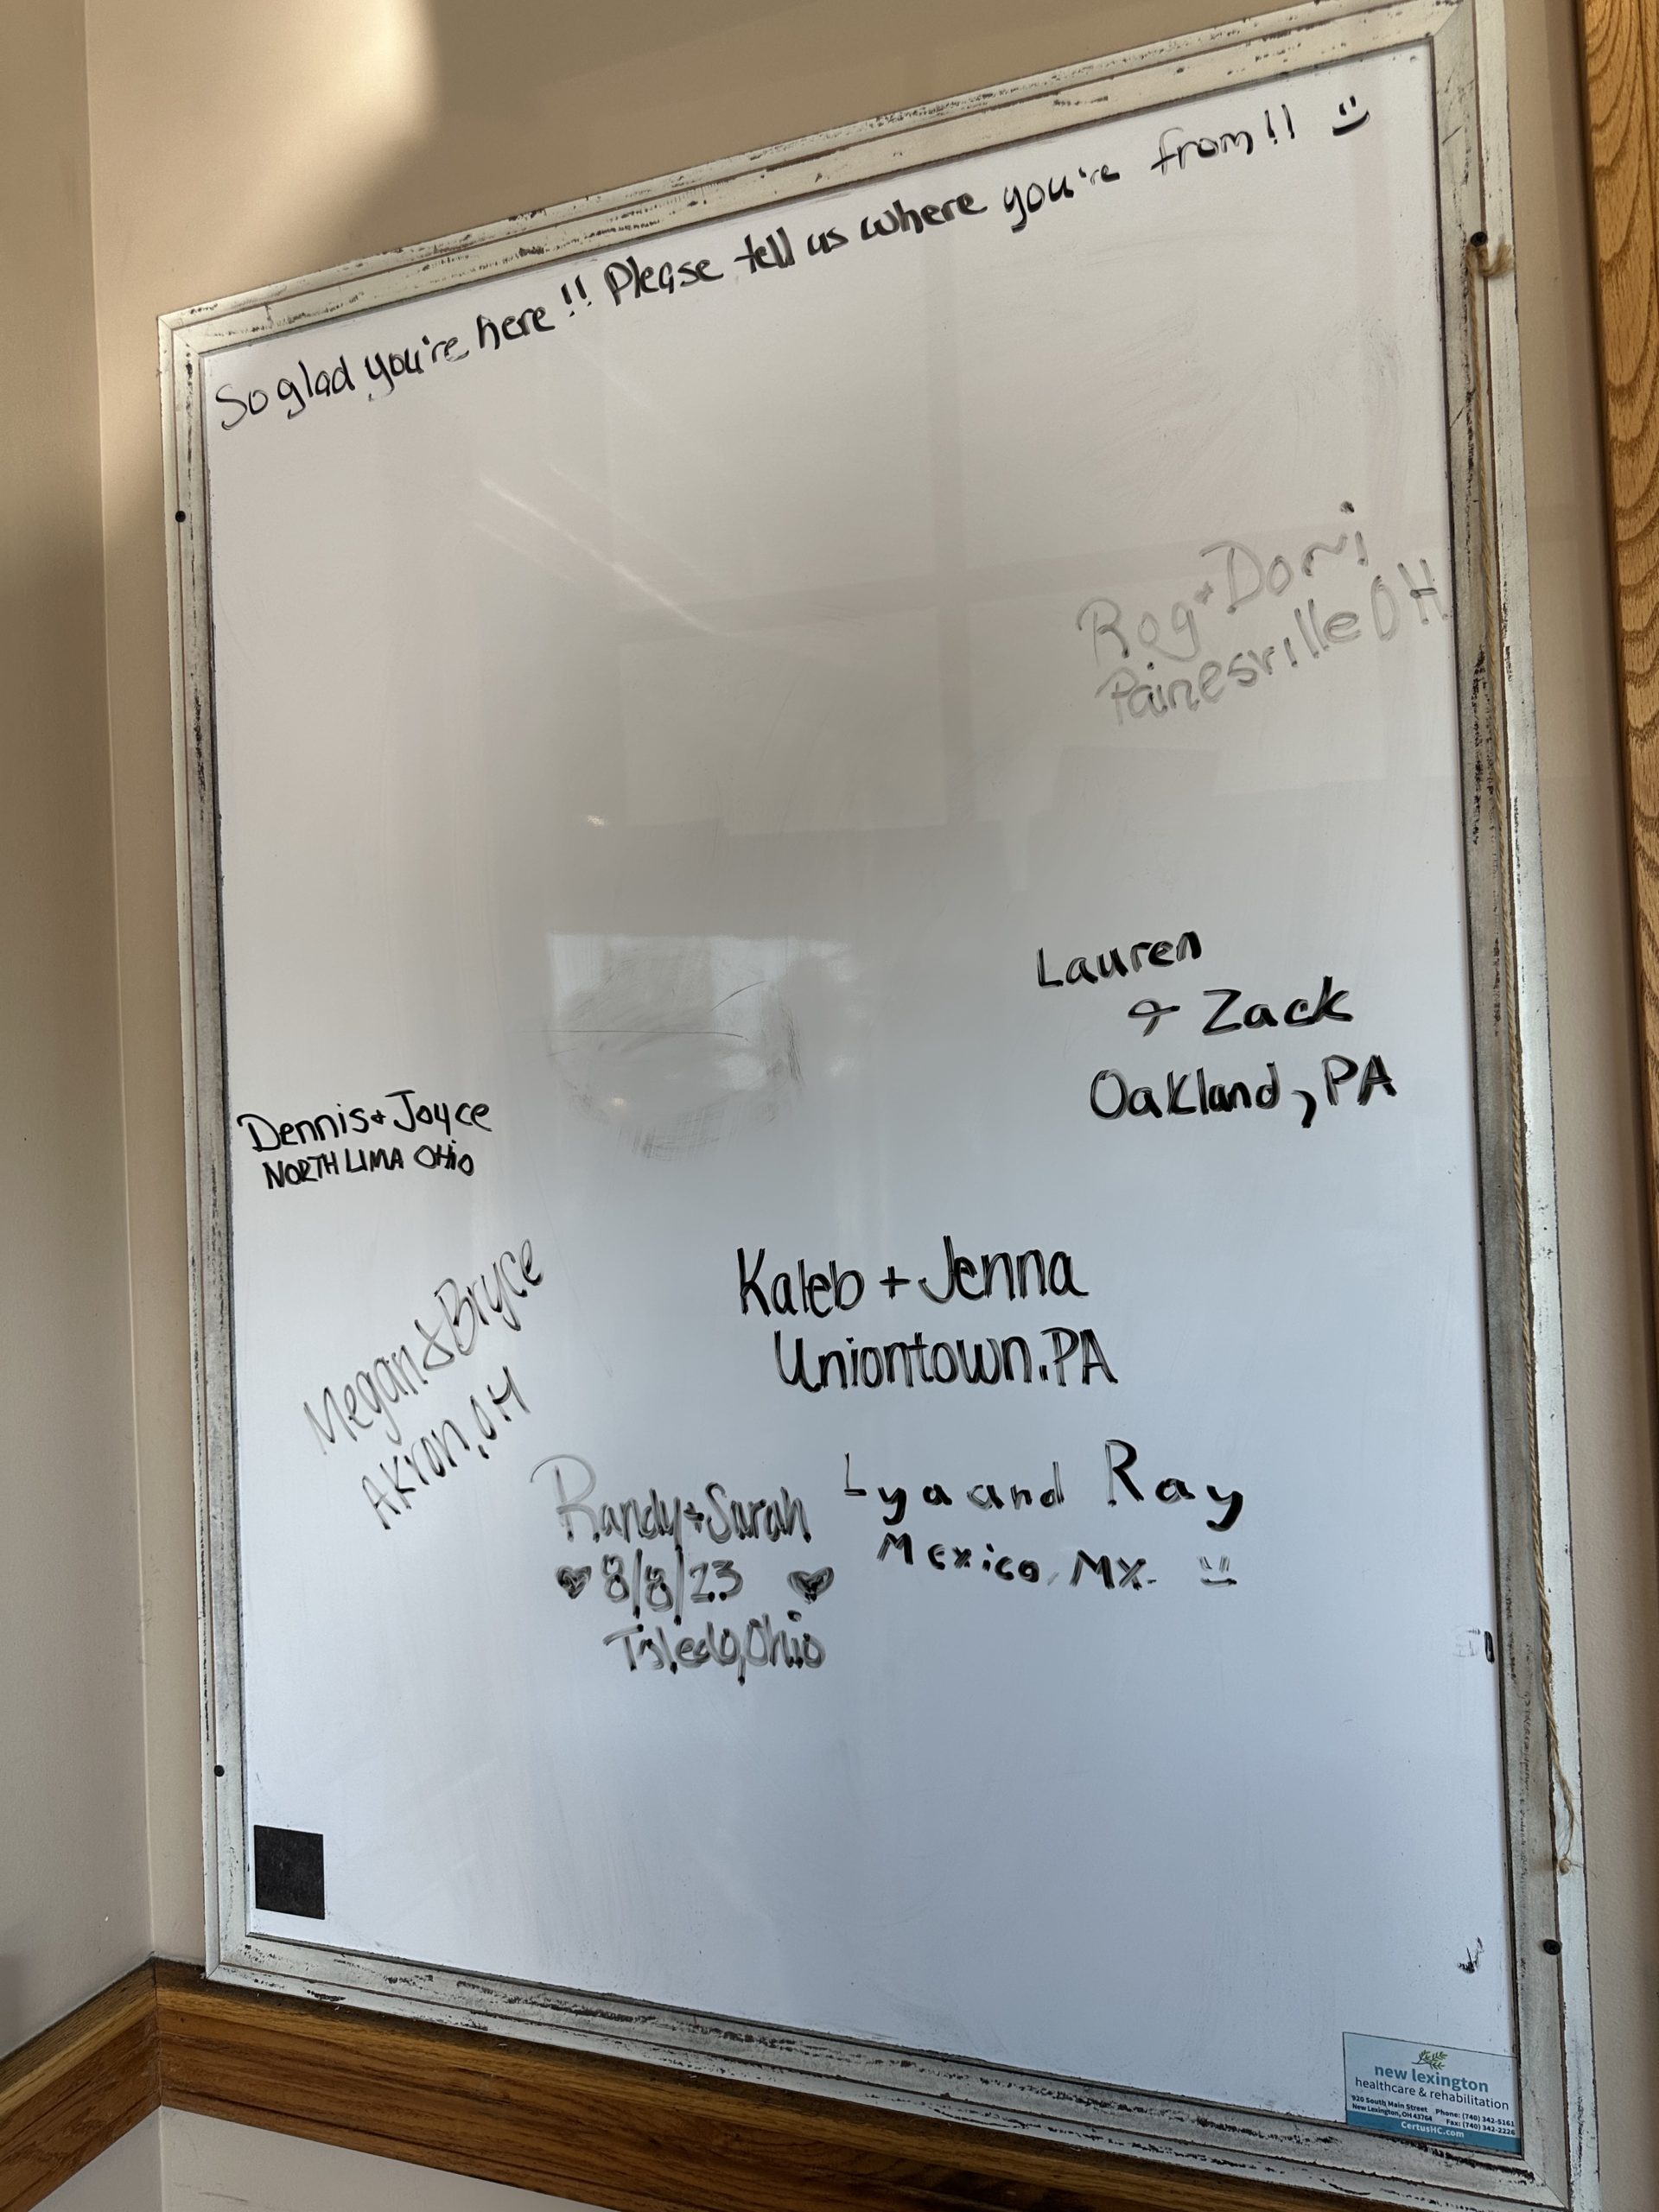 So glad you're here!! Please tell us where you're from!! :)
Rog + Dorri
Painesville OH
Lauren
& Zack
Oakland, PA
Dennis + Joyce
NORTH LIMA OHio
Megan & Bryce
Akron, OH
Kaleb + Jenna
Uniontown, PA
Randy + Sarah
♥ 8/8/23 ♥
Toledo, Ohio
Lya and Ray
Mexico, MX. :)
new lexington
healthcare & rehabilitation
920 South Main Street Phone: (740) 342-5161
New Lexington, OH 43764 Fax: (740) 342-2226
CertusHC.com